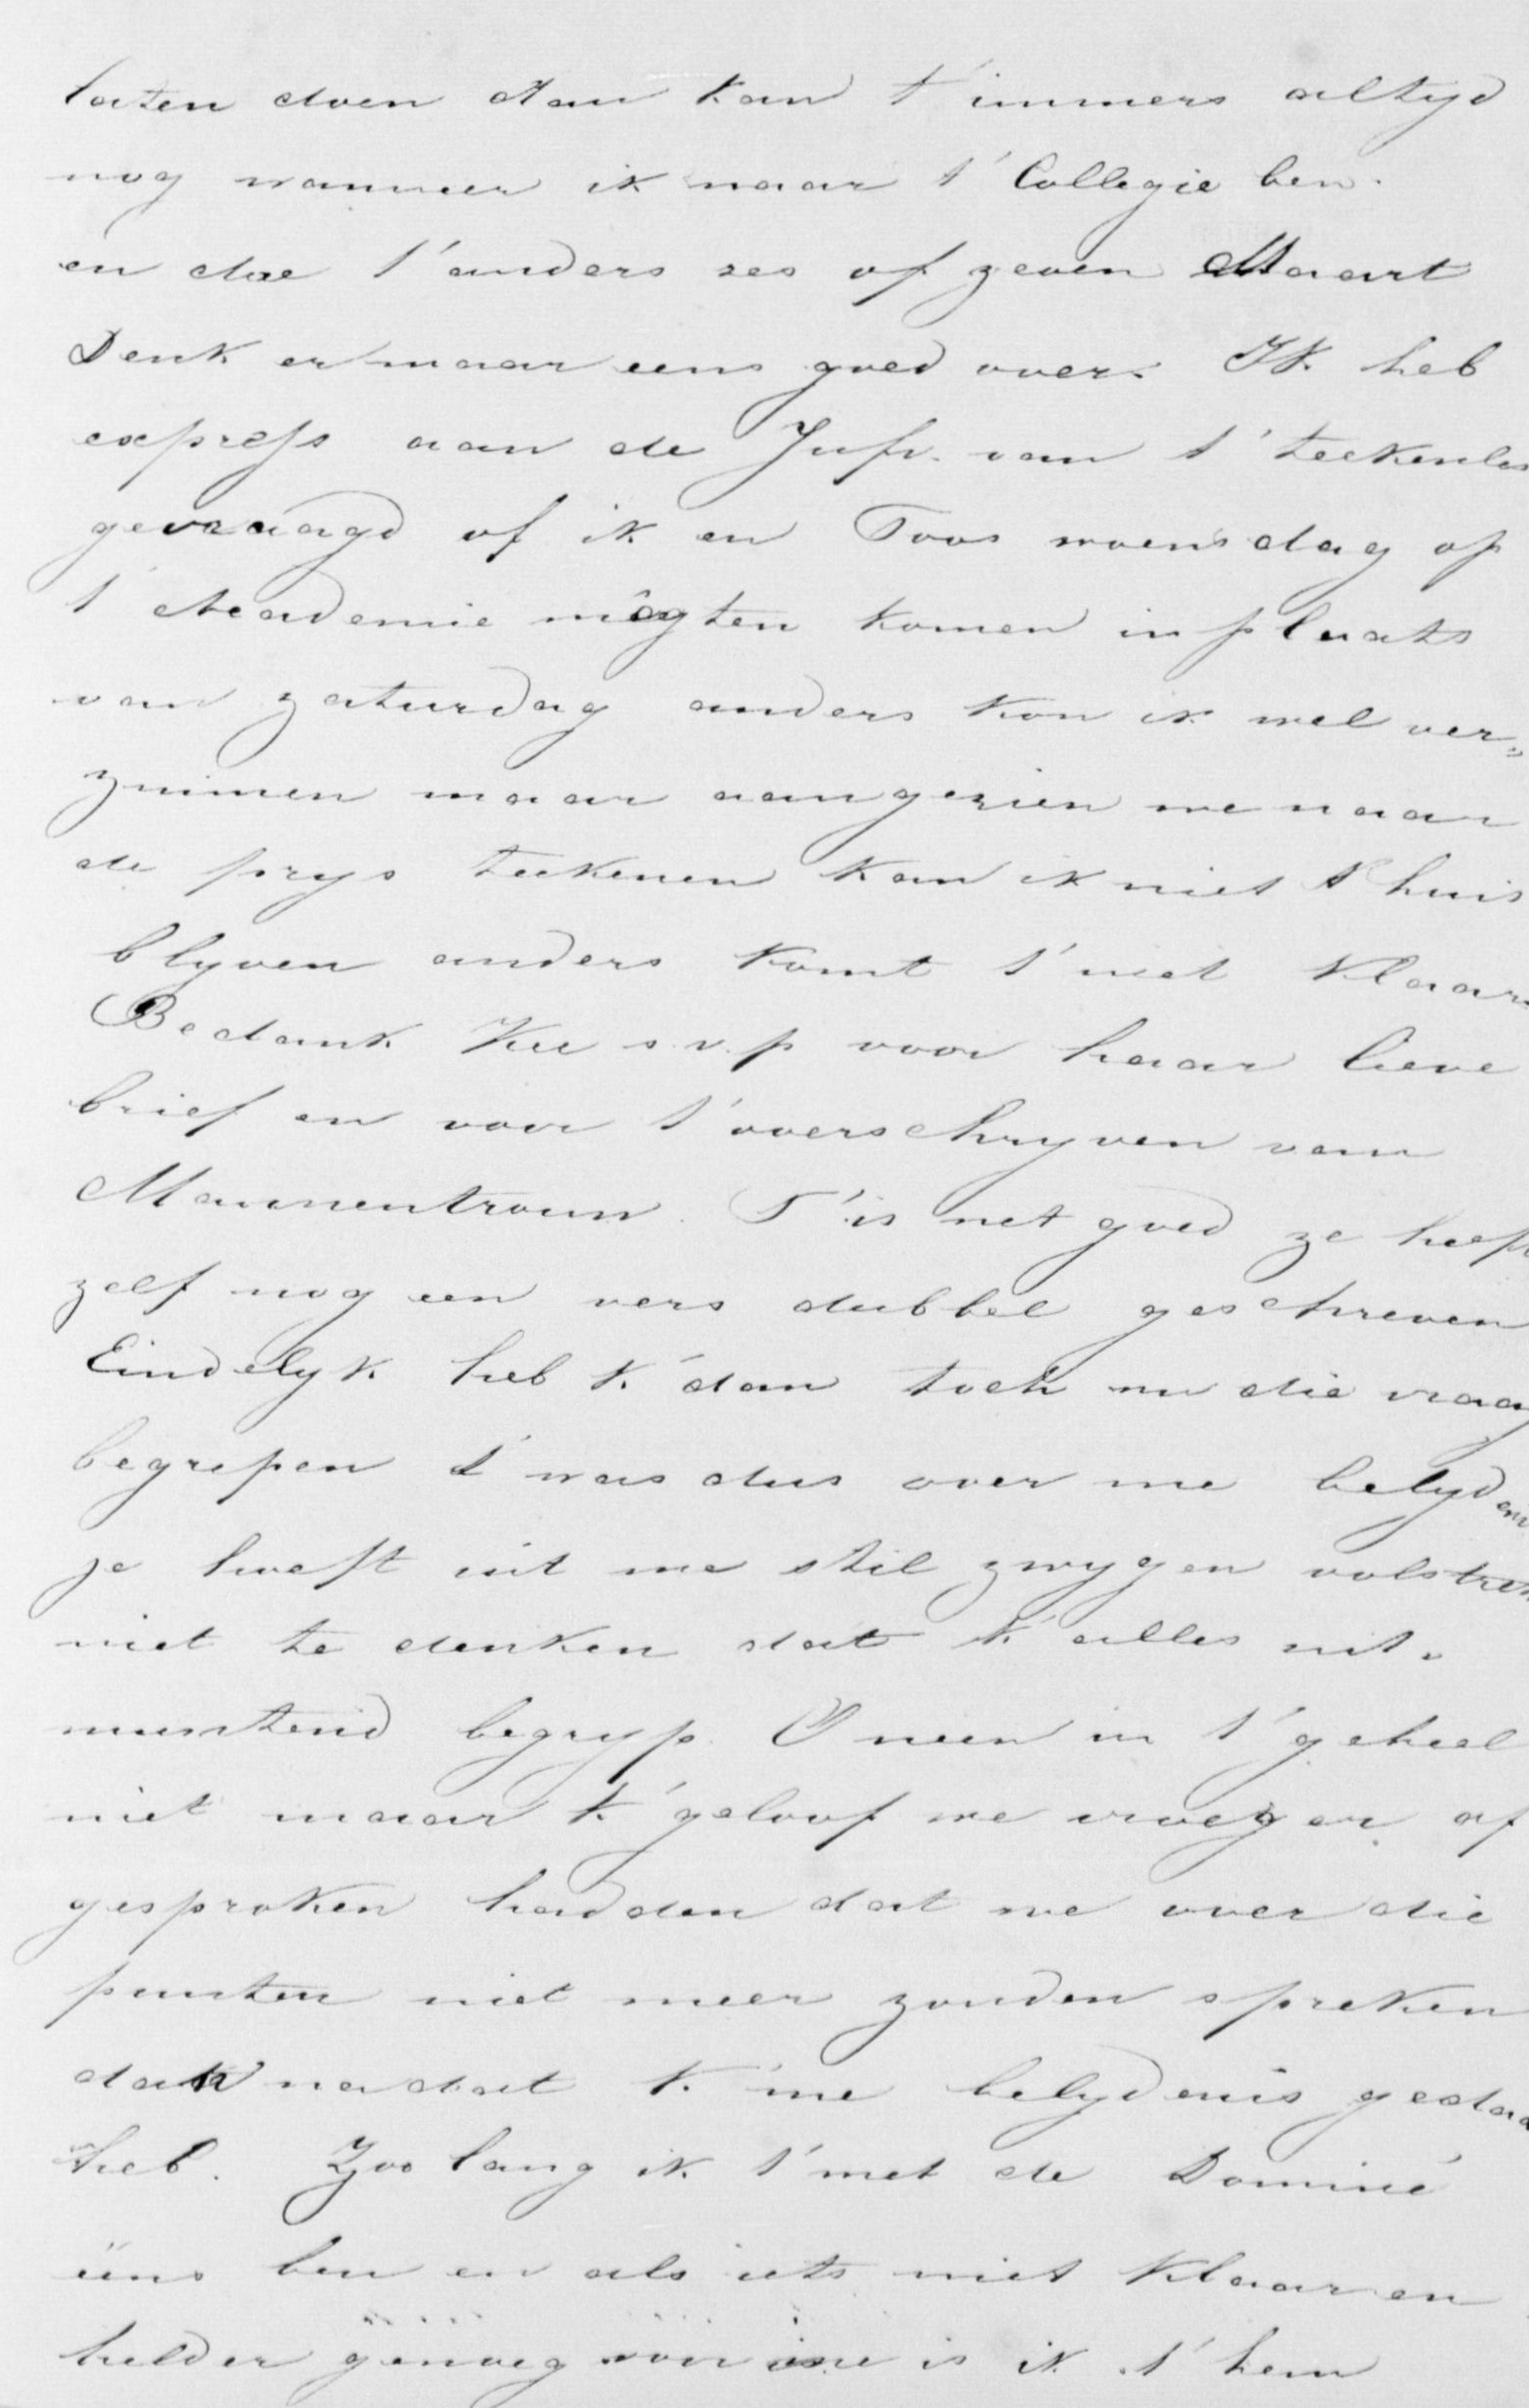 laten doen dan kan t' immers altyd
nog wanneer ik naar t' Collegie ben.
en doe t' anders zes of zeven Maart
Denk er maar eens goed over. Ik heb
express aan de Jufr. van t' teekenles
gevraagd of ik en Toos woensdag op
t' Academie mogten komen in plaats
van zaturdag anders kon ik wel ver„
zuimen maar aangezien we naar
de prys teekenen kan ik niet t'huis
blyven anders komt t' niet klaar
Bedank Kee s.v.p voor haar lieve
brief en voor t' overschryven van
Mannentrouw. T' is net goed ze heeft
zelf nog een vers dubbel geschreven
Eindelyk heb k' dan toch nu die vraag
begrepen t' was dus over me belyden
je hoeft uit me stil zwygen volstrek
niet te denken dat k' alles uit„
muntend begryp. O neen in t' geheel
niet maar k' geloof we vroeger af
gesproken hadden dat we over die
punten niet meer zouden spreken
dan nadat k' me belydenis gedaa
heb. Zoo lang ik t' met de Dominé
ééns ben en als iets niet klaar en
helder genoeg voor me is ik t' hem